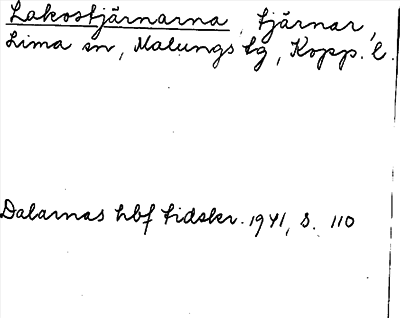 Lakostjärnarna, tjärnar,
Lima sn, Malungs tg, Kopp. l.
Dalarnas hbf tidskr. 1941, s. 110